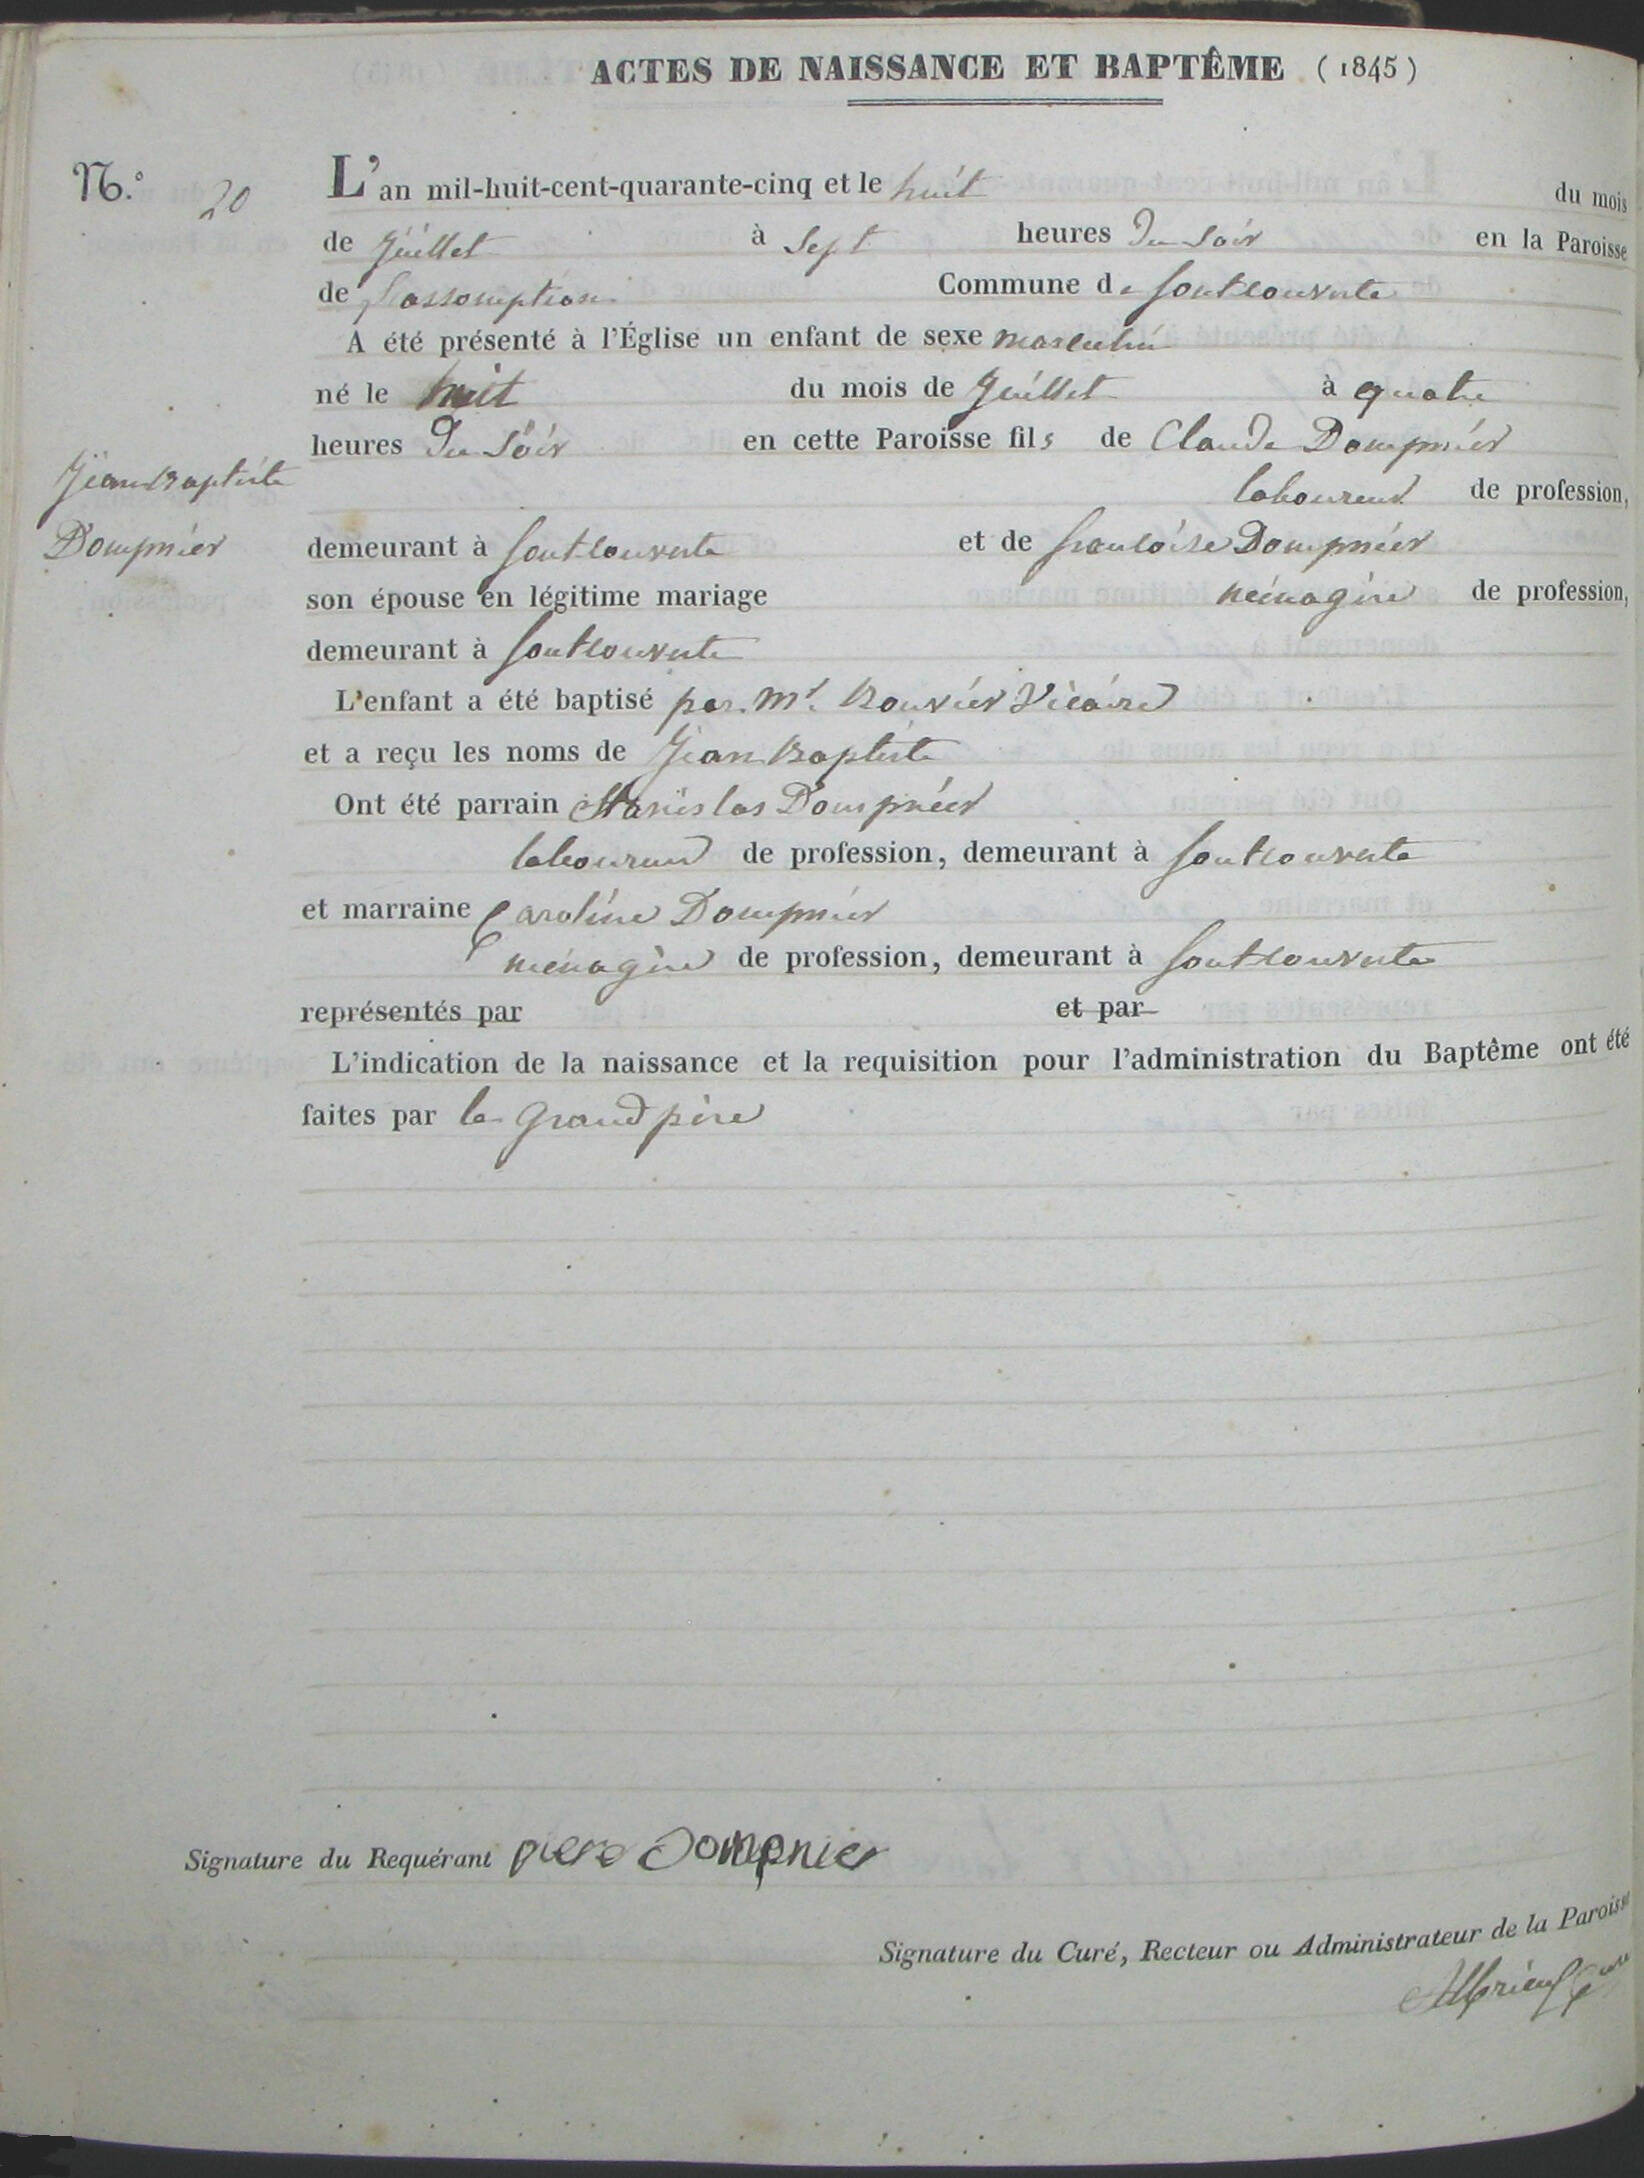 ACTES DE NAISSANCE ET BAPTÊME (1845)
N.° 20
L'an mil-huit-cent-quarante-cinq et le huit du mois
de Juillet à Sept heures du Soir en la Paroisse
de L'assomption Commune de fontcouverte
A été présenté à l'Église un enfant de sexe masculin
né le huit du mois de Juillet à quatre
heures du Soir en cette Paroisse fils de Claude Dompnier
Jean Baptiste
laboureur de profession,
Dompnier
demeurant à fontcouverte et de françoise Dompnier
son épouse en légitime mariage ménagère de profession,
demeurant à fontcouverte
L'enfant a été baptisé par Mr. Bouvier Vicaire
et a reçu les noms de Jean Baptiste
Ont été parrain Stanislas Dompnier
laboureur de profession, demeurant à fontcouverte
et marraine Caroline Dompnier
ménagère de profession, demeurant à fontcouverte
représentés par et par
L'indication de la naissance et la requisition pour l'administration du Baptême ont été
faites par le Grand père
Signature du Requérant piere dompnier
Signature du Curé, Recteur ou Administrateur de la Paroisse
Curé